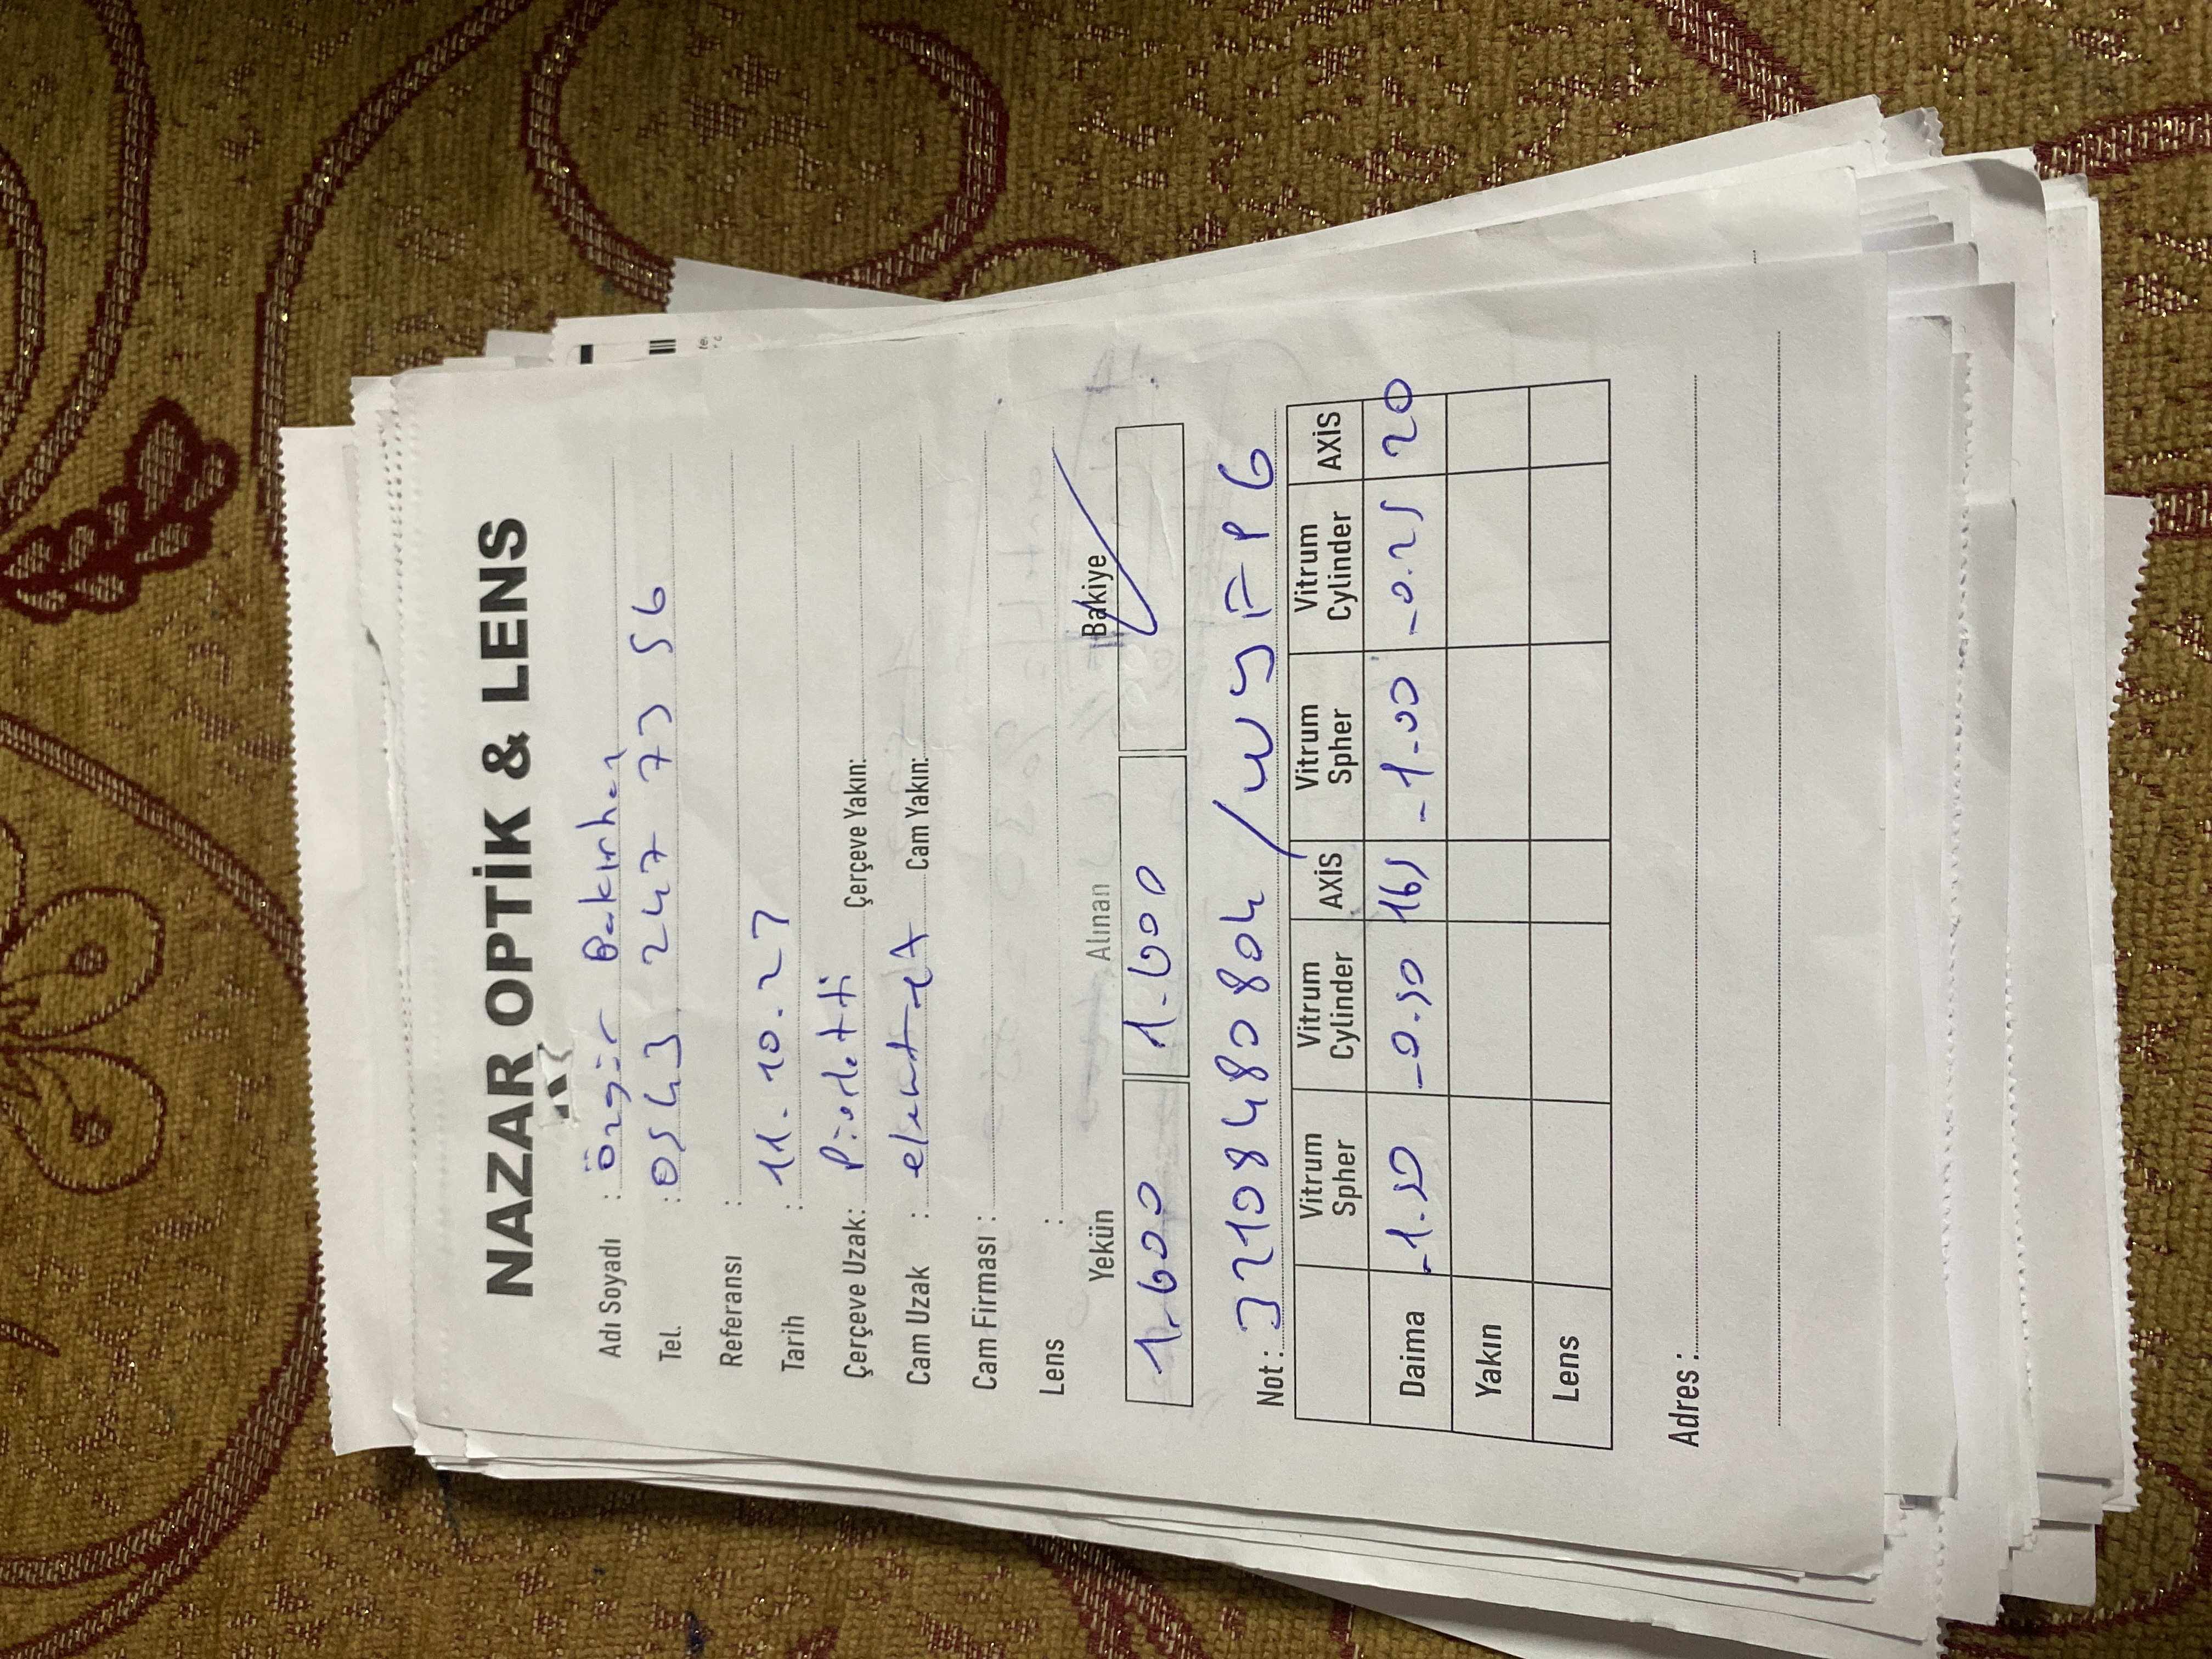 NAZAR OPTİK & LENS
Adı Soyadı : Özgür Bakırhan
Tel. : 0543 247 73 56
Referansı :
Tarih : 11.10.23
Çerçeve Uzak: Pierletti Çerçeve Yakın:
Cam Uzak : Cam Yakın:
Cam Firması :
Lens :
Yekün Alınan Bakiye
1.600 1.600 ✓
Not : 32108480804 / WYFP6
Vitrum Spher Vitrum Cylinder AXİS Vitrum Spher Vitrum Cylinder AXİS
Daima -1.50 -0.50 165 -1.00 -0.25 20
Yakın
Lens
Adres :